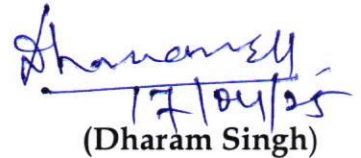 17/04/25
(Dharam Singh)